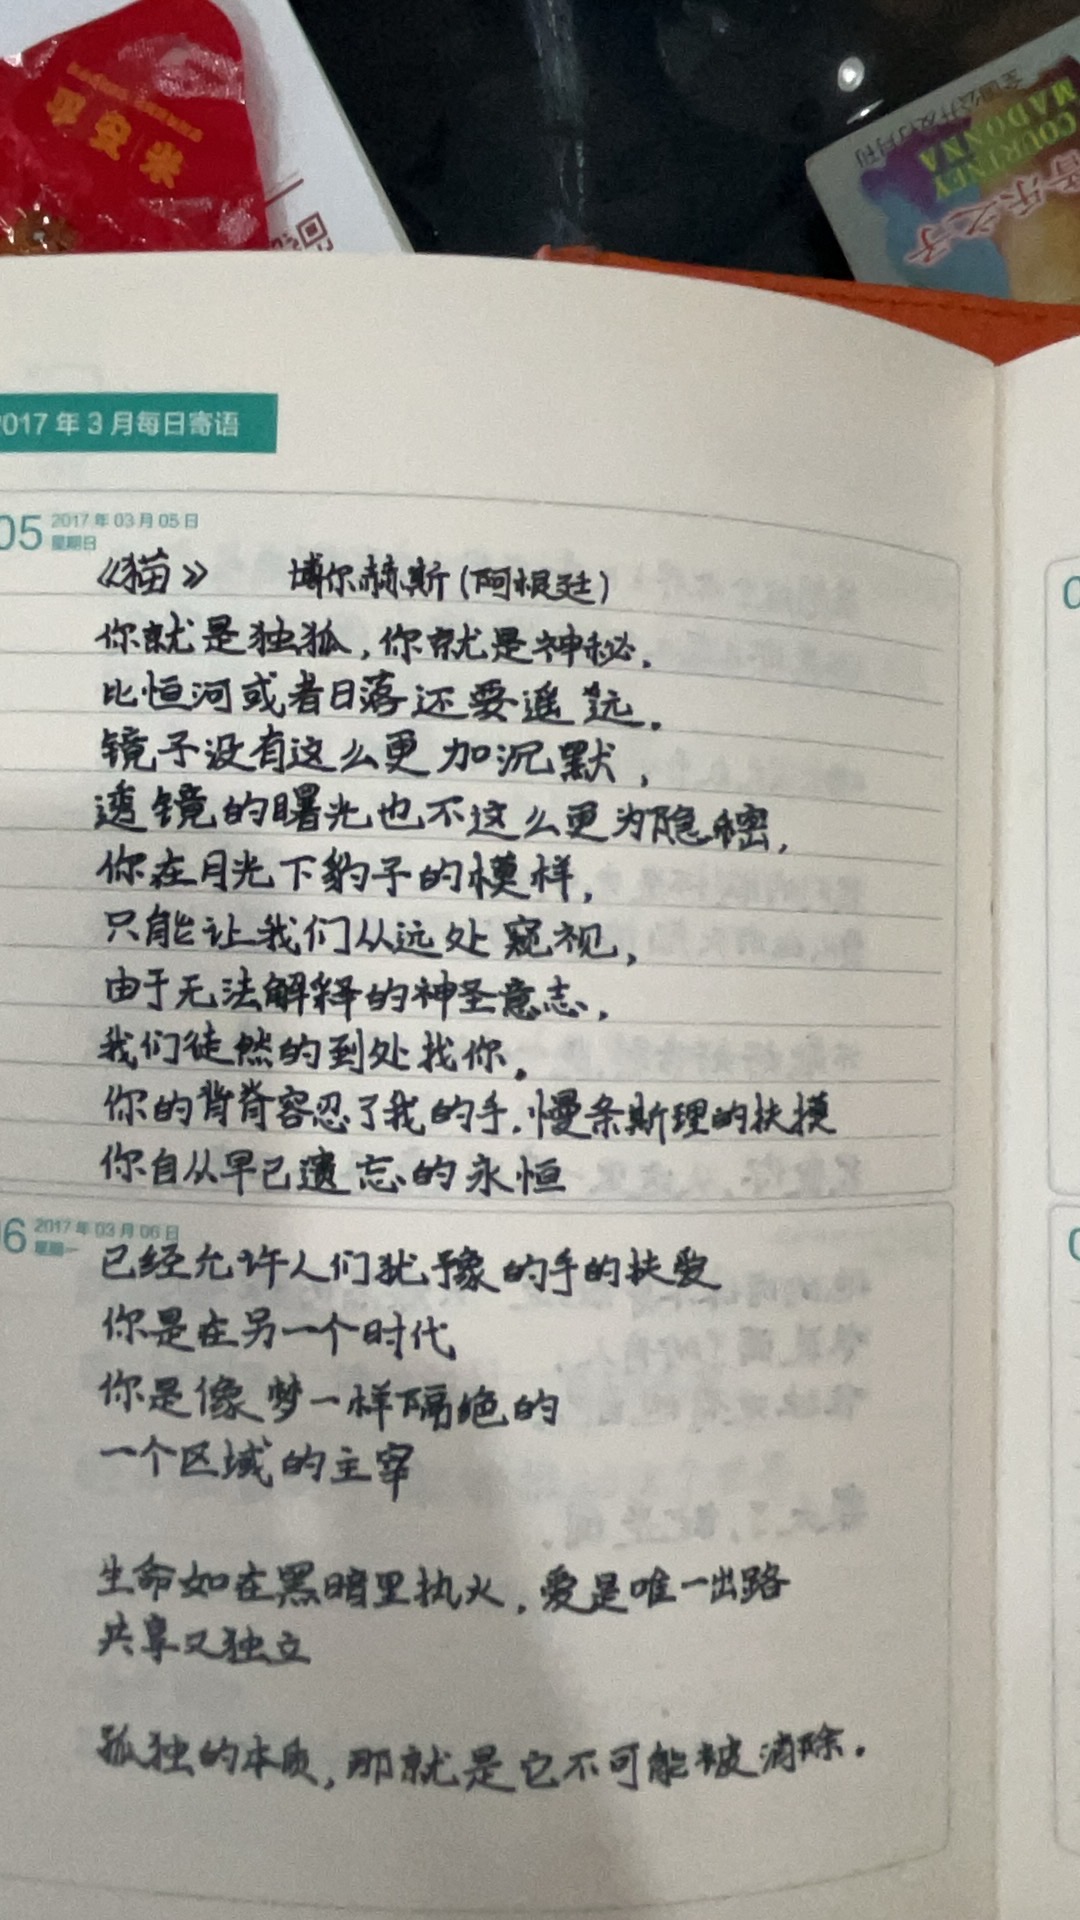 平安 米
全国公开发行月刊
COURTNEY
MADONNA
音乐之子
2017 年 3 月每日寄语
05 2017 年 03 月 05 日
星期日
《猫》 博尔赫斯(阿根廷)
你就是独狐,你就是神秘,
比恒河或者日落还要遥远。
镜子没有这么更加沉默,
透镜的曙光也不这么更为隐密,
你在月光下豹子的模样,
只能让我们从远处窥视,
由于无法解释的神圣意志,
我们徒然的到处找你。
你的背脊容忍了我的手,慢条斯理的扶摸
你自从早已遗忘的永恒
06 2017 年 03 月 06 日
星期一
已经允许人们犹豫的手的扶爱
你是在另一个时代
你是像梦一样隔绝的
一个区域的主宰
生命如在黑暗里执火,爱是唯一出路
共享又独立
孤独的本质,那就是它不可能被消除。